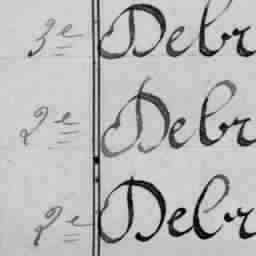 3e Debr
2e Debr
2e Debr